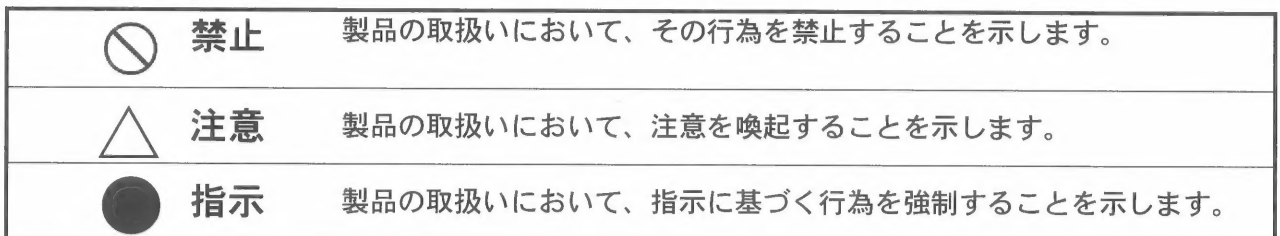 禁止 製品の取扱いにおいて、その行為を禁止することを示します。
注意 製品の取扱いにおいて、注意を喚起することを示します。
指示 製品の取扱いにおいて、指示に基づく行為を強制することを示します。